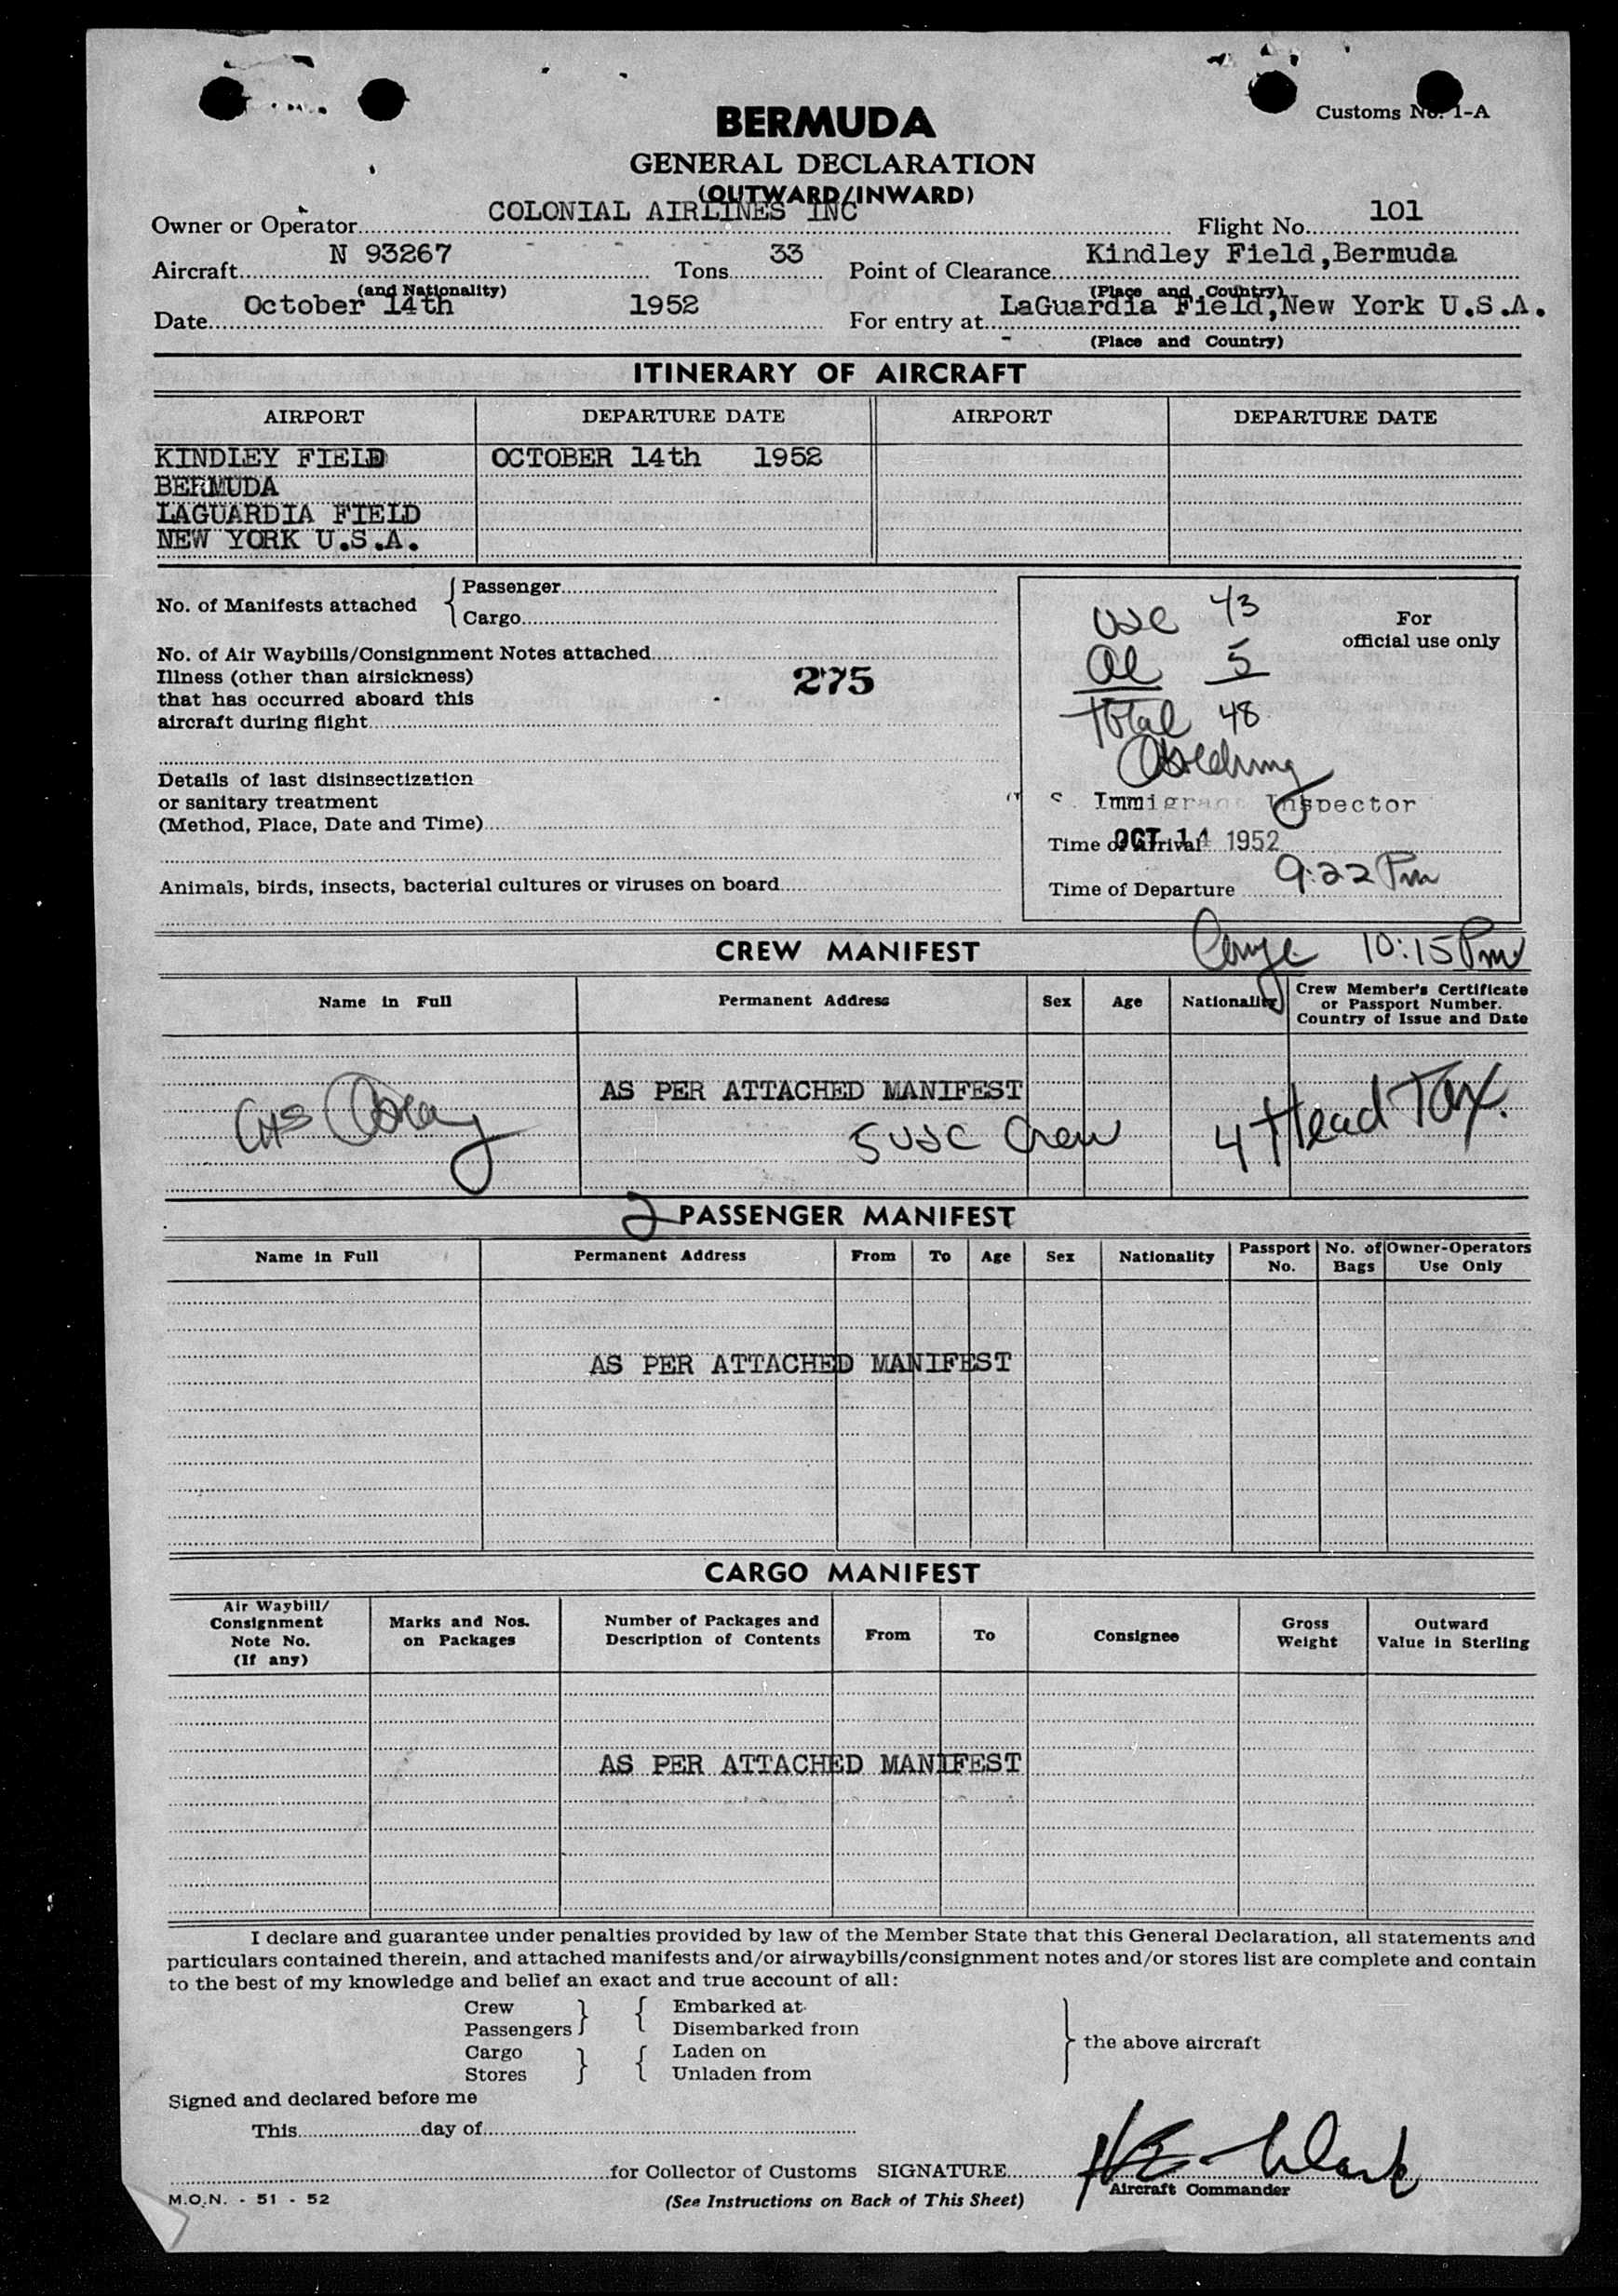 Customs No. 1-A
BERMUDA
GENERAL DECLARATION
(OUTWARD/INWARD)
Owner or Operator COLONIAL AIRLINES INC Flight No. 101
Aircraft N 93267 Tons 33 Point of Clearance Kindley Field,Bermuda
(and Nationality) (Place and Country)
Date October 14th 1952 For entry at LaGuardia Field,New York U.S.A.
(Place and Country)
ITINERARY OF AIRCRAFT
AIRPORT DEPARTURE DATE AIRPORT DEPARTURE DATE
KINDLEY FIELD OCTOBER 14th 1952
BERMUDA
LAGUARDIA FIELD
NEW YORK U.S.A.
No. of Manifests attached { Passenger
Cargo
No. of Air Waybills/Consignment Notes attached
Illness (other than airsickness)
that has occurred aboard this
aircraft during flight
275
Details of last disinsectization
or sanitary treatment
(Method, Place, Date and Time)
Animals, birds, insects, bacterial cultures or viruses on board
For
official use only
USC 43
Al 5
Total 48
S. Immigrant Inspector
Time of Arrival OCT 14 1952
Time of Departure 9:22 Pm
10:15 Pm
CREW MANIFEST
Name in Full Permanent Address Sex Age Nationality Crew Member's Certificate
or Passport Number.
Country of Issue and Date
AS PER ATTACHED MANIFEST
5 USC Crew 4 Head Tax.
2 PASSENGER MANIFEST
Name in Full Permanent Address From To Age Sex Nationality Passport No. No. of Bags Owner-Operators Use Only
AS PER ATTACHED MANIFEST
CARGO MANIFEST
Air Waybill/
Consignment
Note No.
(If any)
Marks and Nos.
on Packages
Number of Packages and
Description of Contents
From To Consignee
Gross
Weight
Outward
Value in Sterling
AS PER ATTACHED MANIFEST
I declare and guarantee under penalties provided by law of the Member State that this General Declaration, all statements and
particulars contained therein, and attached manifests and/or airwaybills/consignment notes and/or stores list are complete and contain
to the best of my knowledge and belief an exact and true account of all:
Crew } { Embarked at
Passengers Disembarked from
Cargo } { Laden on
Stores Unladen from
} the above aircraft
Signed and declared before me
This day of
for Collector of Customs SIGNATURE H E Clark
Aircraft Commander
M.O.N. - 51 - 52 (See Instructions on Back of This Sheet)